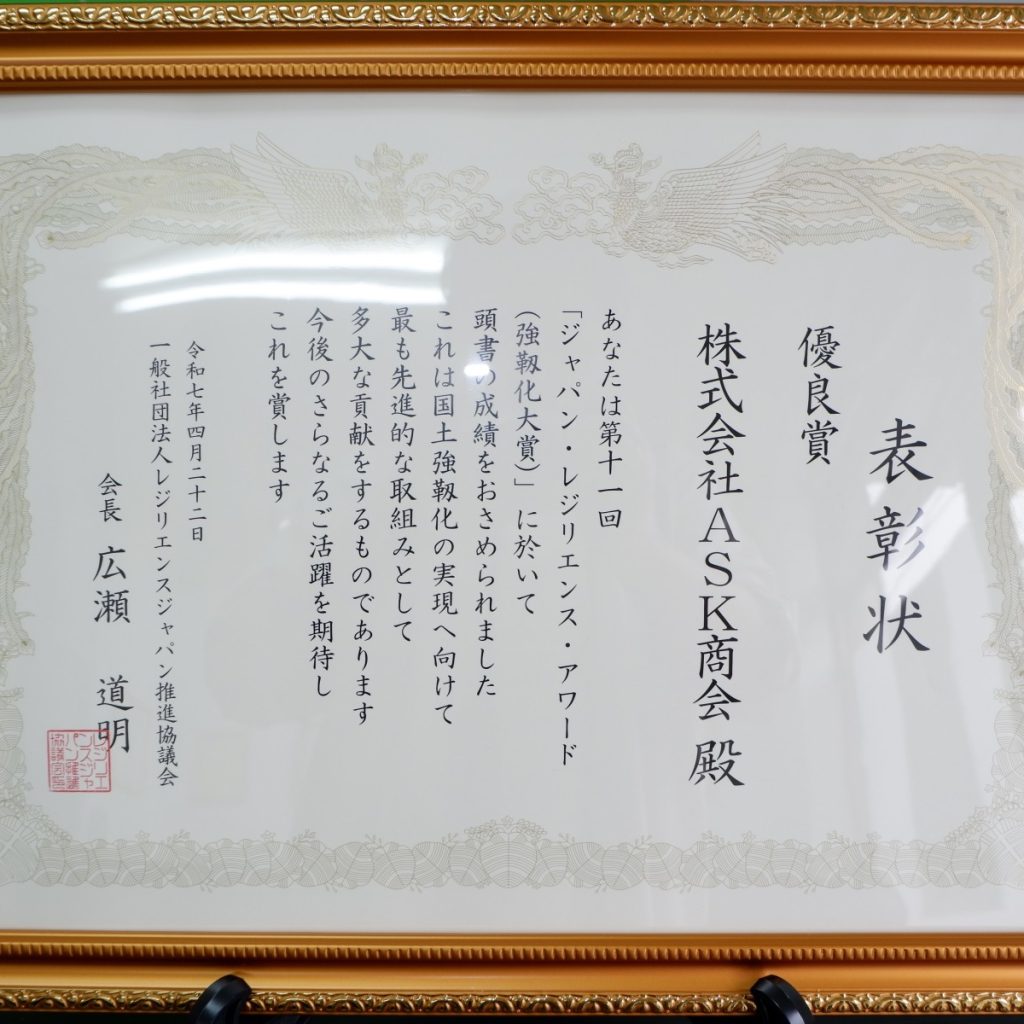 表彰状
優良賞
株式会社ASK商会 殿
あなたは第十一回
「ジャパン・レジリエンス・アワード
(強靱化大賞)」に於いて
頭書の成績をおさめられました
これは国土強靱化の実現へ向けて
最も先進的な取組みとして
多大な貢献をするものであります
今後のさらなるご活躍を期待し
これを賞します
令和七年四月二十二日
一般社団法人レジリエンスジャパン推進協議会
会長 広瀬 道明
レジリエ
ンスジャ
パン推進